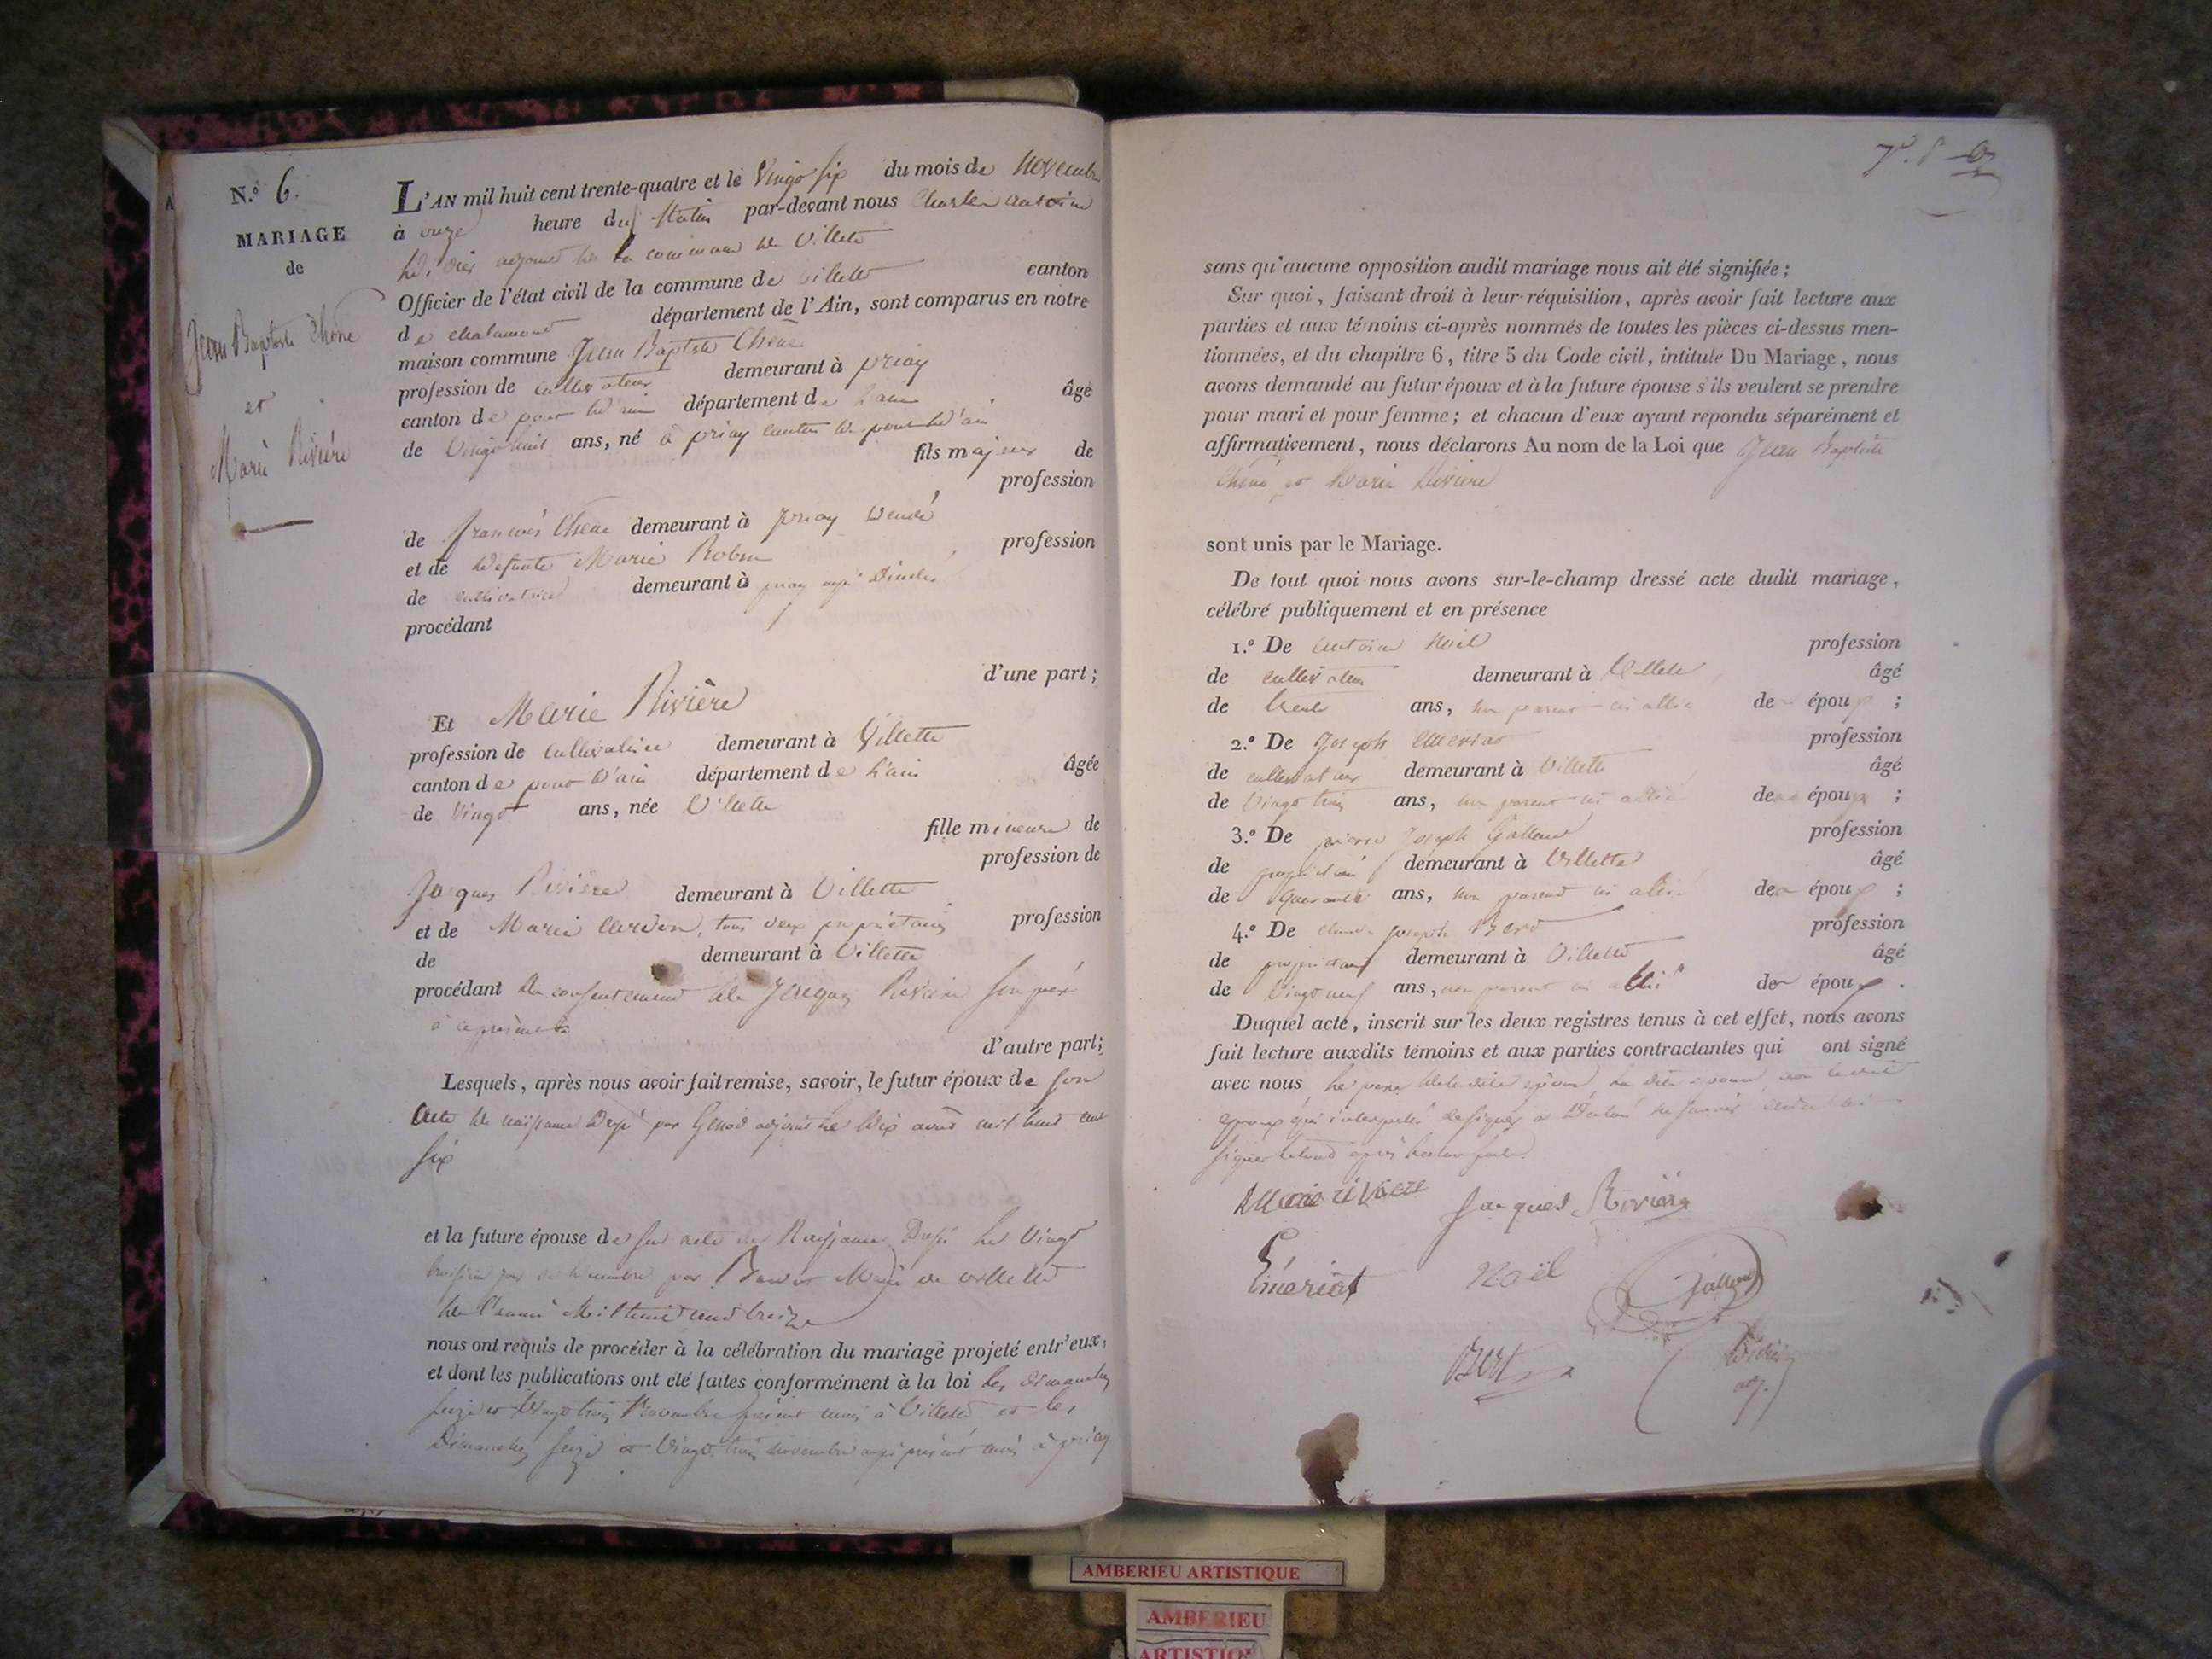 N.º 6.
MARIAGE
de
Jean Baptiste Chêne
et
Marie Rivière
L'AN mil huit cent trente-quatre et le Vingt six du mois de Novembre
à onze heure du Matin par-devant nous Charles antoine
adjoint de la commune de Villette
Officier de l'état civil de la commune de Villette canton
de chalamont département de l'Ain, sont comparus en notre
maison commune Jean Baptiste Chêne
profession de cultivateur demeurant à priay
canton de pont d'ain département de l'ain âgé
de Vingt huit ans, né à priay canton de pont d'ain
fils majeur de
profession
de françois Chêne demeurant à priay
et de defunte Marie Robin profession
de cultivatrice demeurant à priay
procédant
d'une part;
Et Marie Rivière
profession de cultivatrice demeurant à Villette
canton de pont d'ain département de l'ain âgée
de Vingt ans, née Villette
fille mineure de
profession de
Jacques Rivière demeurant à Villette
et de Marie Cardon, tous deux propriétaires profession
de demeurant à Villette
procédant du consentement de Jacques Rivière son père
à ce présent
d'autre part;
Lesquels, après nous avoir fait remise, savoir, le futur époux de son
acte de naissance par Genod adjoint le dix août mil huit cent
six
et la future épouse de son acte de Naissance le Vingt
par Maire de Villette
de l'année Mil huit cent treize
nous ont requis de procéder à la célébration du mariage projeté entr'eux,
et dont les publications ont été faites conformément à la loi les dimanches
seize et Vingt trois Novembre présent mois à Villette et les
Dimanches seize et Vingt trois novembre aussi présent mois à priay
sans qu'aucune opposition audit mariage nous ait été signifiée;
Sur quoi, faisant droit à leur réquisition, après avoir fait lecture aux
parties et aux témoins ci-après nommés de toutes les pièces ci-dessus men-
tionnées, et du chapitre 6, titre 5 du Code civil, intitulé Du Mariage, nous
avons demandé au futur époux et à la future épouse s'ils veulent se prendre
pour mari et pour femme; et chacun d'eux ayant répondu séparément et
affirmativement, nous déclarons Au nom de la Loi que Jean Baptiste
Chêne et Marie Rivière
sont unis par le Mariage.
De tout quoi nous avons sur-le-champ dressé acte dudit mariage,
célébré publiquement et en présence
1.º De antoine Noël profession
de cultivateur demeurant à Villette âgé
de trente ans, non parent ni allié de époux ;
2.º De Joseph Emeriat profession
de cultivateur demeurant à Villette âgé
de Vingt trois ans, non parent ni allié des époux ;
3.º De pierre Joseph profession
de propriétaire demeurant à Villette âgé
de quarante ans, non parent ni allié des époux ;
4.º De Joseph profession
de propriétaire demeurant à Villette âgé
de Vingt neuf ans, non parent ni allié des époux .
Duquel acte, inscrit sur les deux registres tenus à cet effet, nous avons
fait lecture auxdits témoins et aux parties contractantes qui ont signé
avec nous le père
époux qui de signer a
signer après lecture faite.
Marie rivière Jacques Rivière
Emeriat Noël
Bert
adj.
AMBERIEU ARTISTIQUE
AMBERIEU